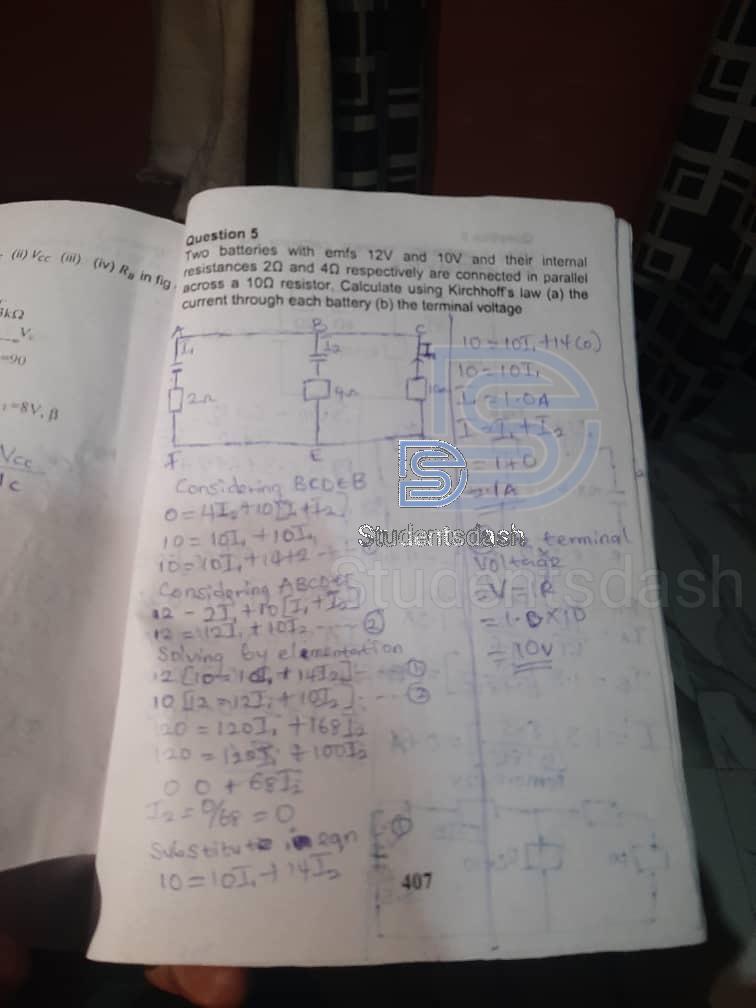 (ii) Vcc (iii) (iv) RB in fig.
3kΩ
Vc
=90
=8V, β
Vcc
Ic
Question 5
Two batteries with emfs 12V and 10V and their internal
resistances 2Ω and 4Ω respectively are connected in parallel
across a 10Ω resistor. Calculate using Kirchhoff's law (a) the
current through each battery (b) the terminal voltage
A B C
I1 I2
2Ω 4Ω
F E
Considering BCDEB
0=4I2+10[I1+I2]
10=10I1+10I1
10=10I1+14+2
Considering ABCDEF
12-2I1+10[I1+I2]
12=12I1+10I2 ---- ②
Solving by elementation
12[10=10I1+14I2] ---- ①
10[12=12I1+10I2] ---- ②
120=120I1+168I2
120=120I1+100I2
0 0+68I2
I2=0/68=0
Substitute in eqn ①
10=10I1+14I2
10=10I1+14(0)
10=10I1
I1=1.0A
I=I1+I2
=1+0
=1A
terminal
Voltage
=V=IR
=1.0×10
=10V
407
Studentsdash
Studentsdash